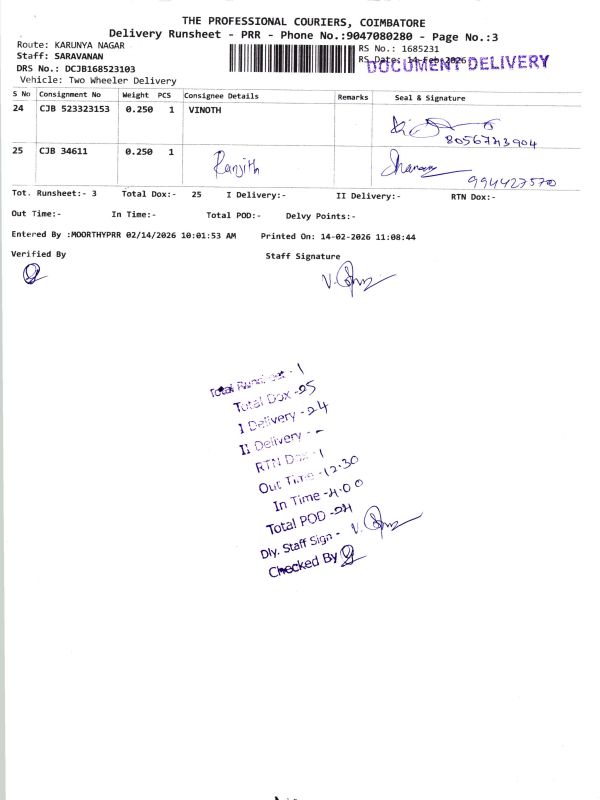 THE PROFESSIONAL COURIERS, COIMBATORE
Delivery Runsheet - PRR - Phone No.:9047080280 - Page No.:3
Route: KARUNYA NAGAR
RS No.: 1685231
Staff: SARAVANAN
RS Date: 14-Feb-2026
DOCUMENT DELIVERY
DRS No.: DCJB168523103
Vehicle: Two Wheeler Delivery
S No Consignment No Weight PCS Consignee Details Remarks Seal & Signature
24 CJB 523323153 0.250 1 VINOTH
8056743904
25 CJB 34611 0.250 1 Ranjith
994427570
Tot. Runsheet:- 3 Total Dox:- 25 I Delivery:- II Delivery:- RTN Dox:-
Out Time:- In Time:- Total POD:- Delvy Points:-
Entered By :MOORTHYPRR 02/14/2026 10:01:53 AM Printed On: 14-02-2026 11:08:44
Verified By Staff Signature
Total Runsheet - 1
Total Dox - 25
I Delivery - 24
II Delivery - -
RTN Dox - 1
Out Time - 12.30
In Time - 4.00
Total POD - 24
Dly. Staff Sign -
Checked By